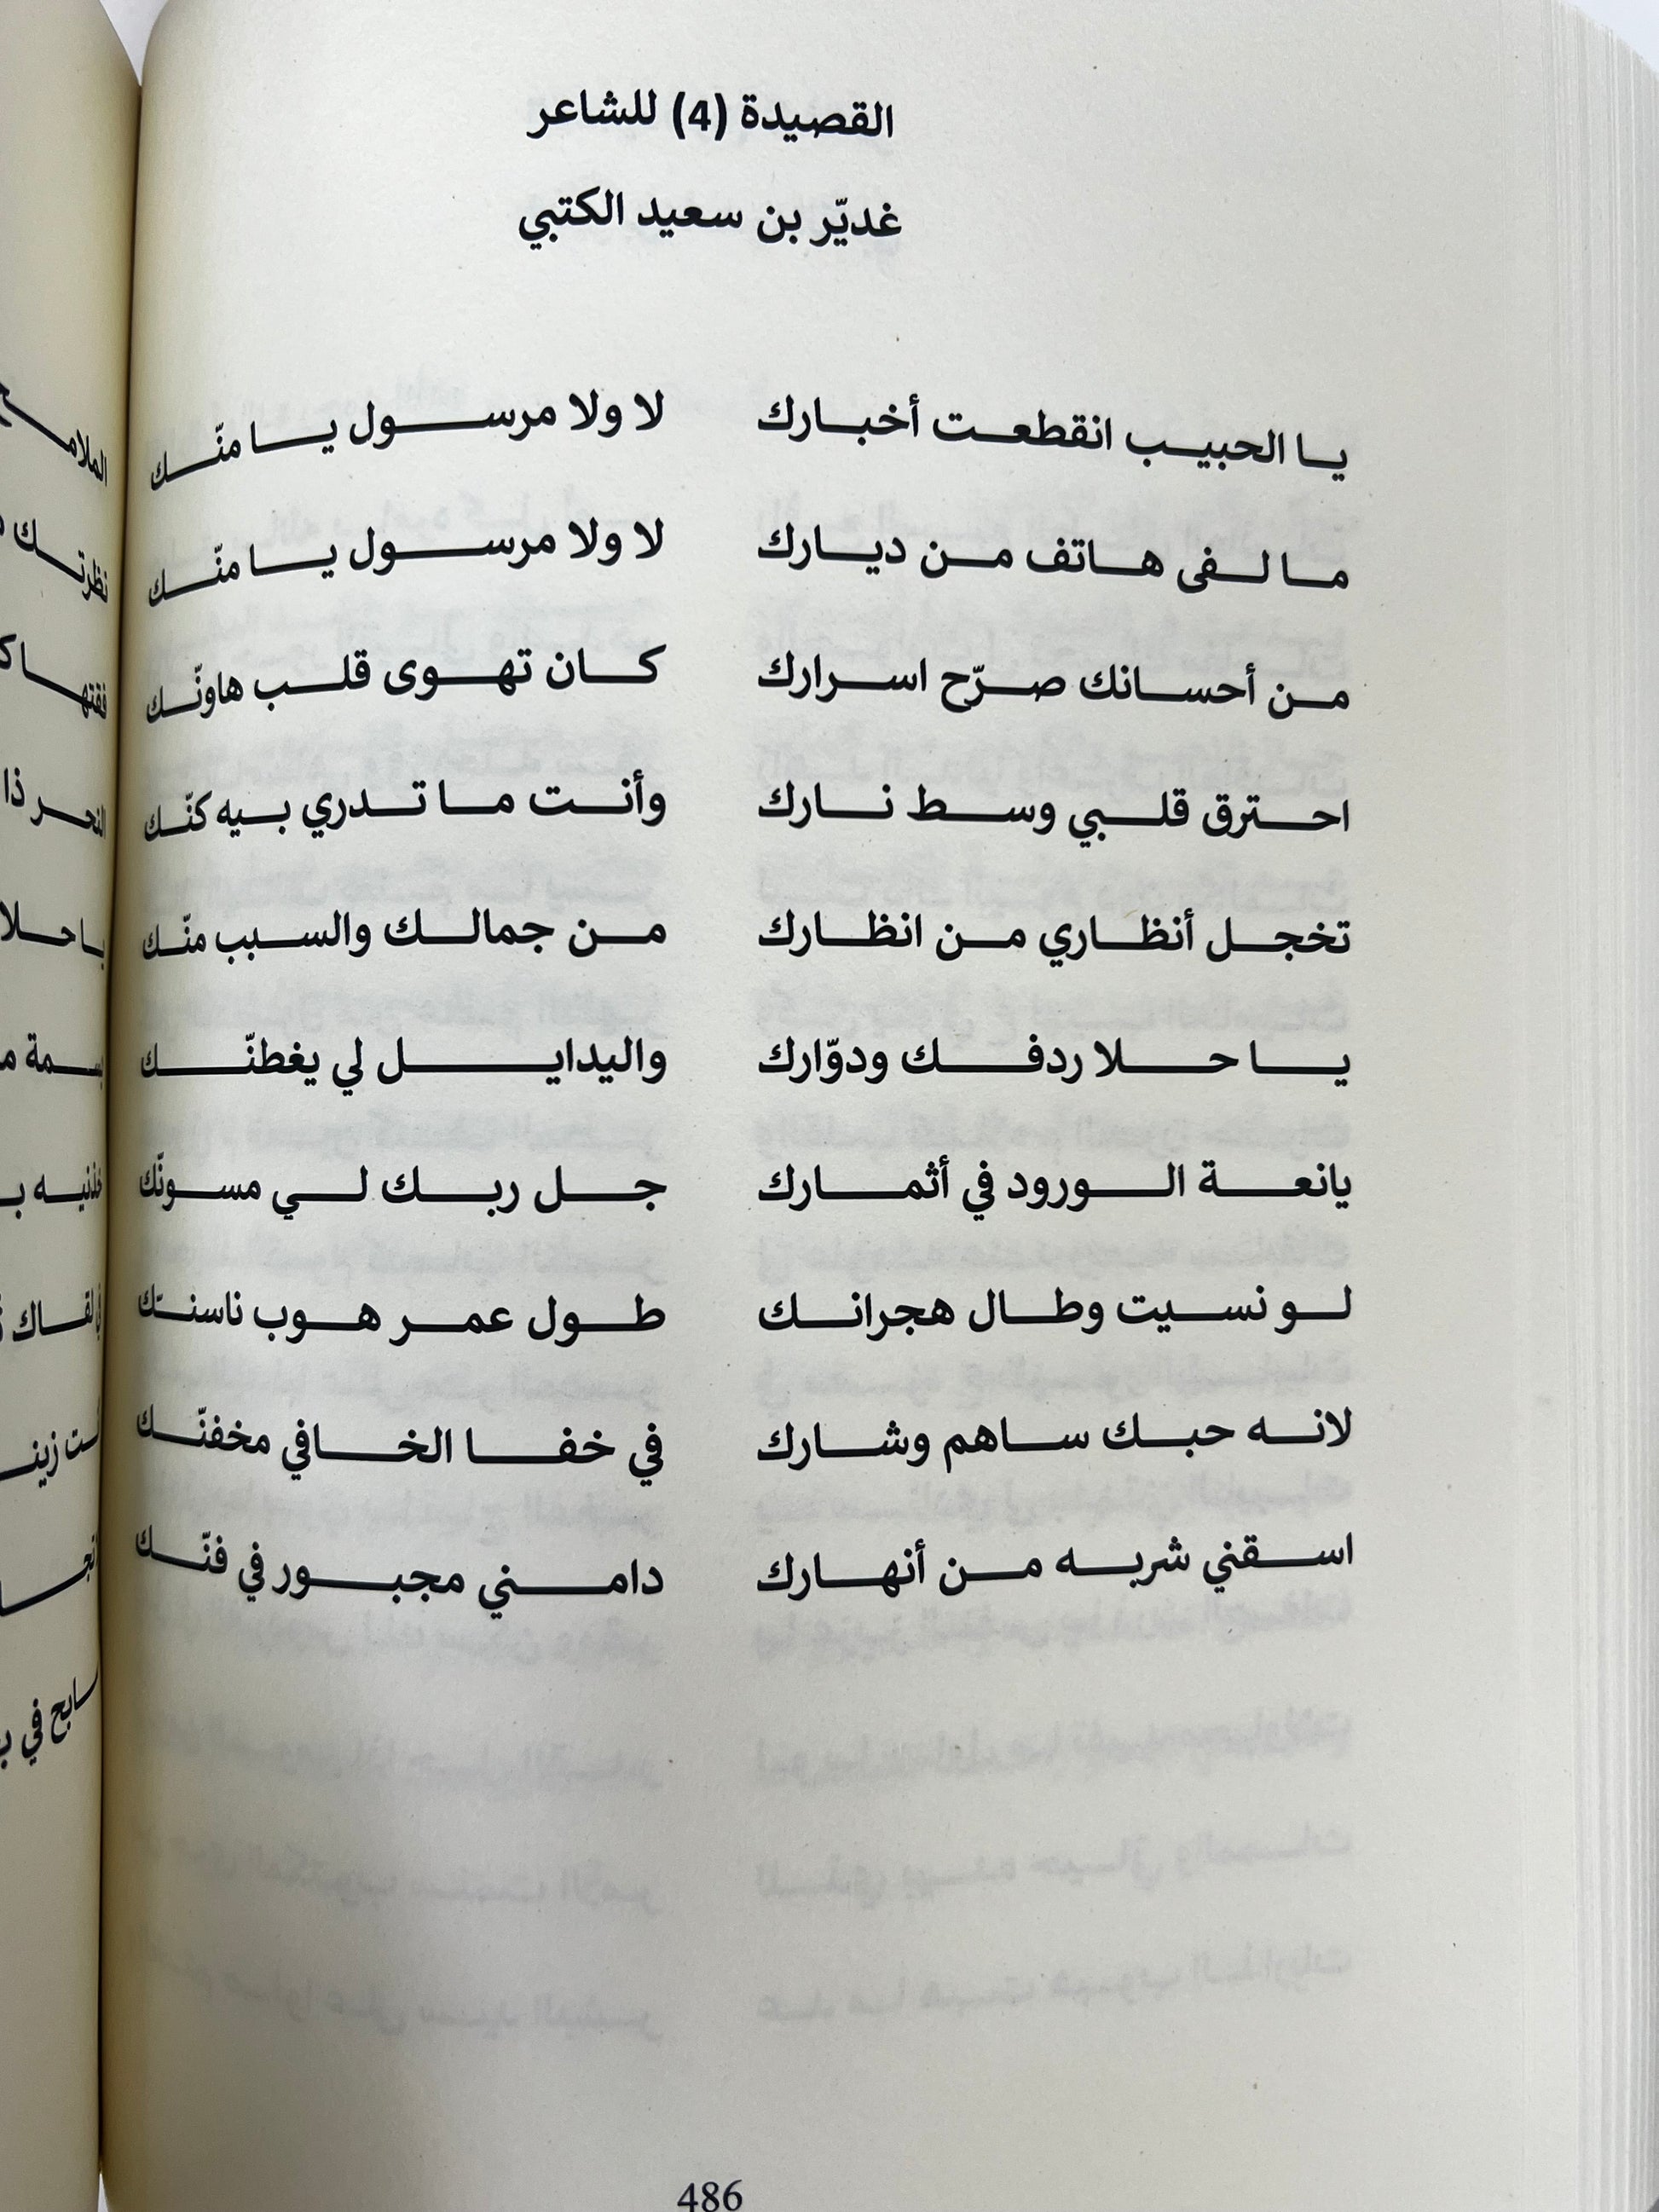 القصيدة (4) للشاعر
غديّر بن سعيد الكتبي
يا الحبيب انقطعت أخبارك لا ولا مرسول يا منّك
ما لفى هاتف من ديارك لا ولا مرسول يا منّك
من أحسانك صرّح اسرارك كان تهوى قلب هاونّك
احترق قلبي وسط نارك وأنت ما تدري بيه كنّك
تخجل أنظاري من انظارك من جمالك والسبب منّك
يا حلا ردفك ودوّارك واليدايل لي يغطنّك
يانعة الورود في أثمارك جل ربك لي مسونّك
لو نسيت وطال هجرانك طول عمر هوب ناسنّك
لانه حبك ساهم وشارك في خفا الخافي مخفنّك
اسقني شربه من أنهارك دامني مجبور في فنّك
486